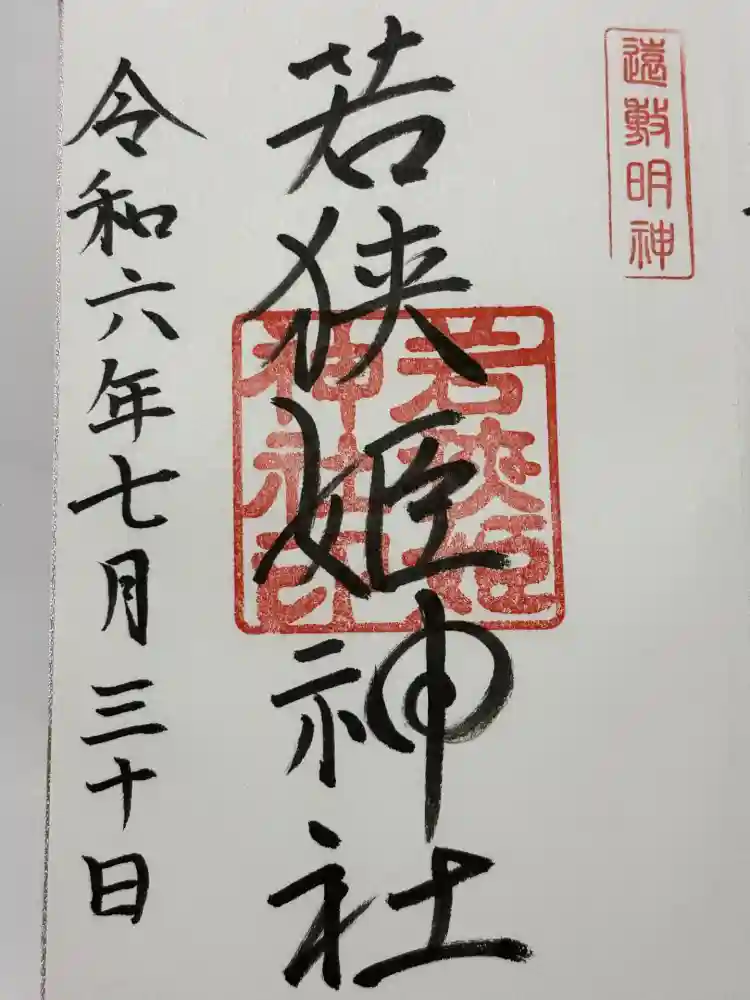 遠敷明神
若狭姫神社
若狭姫
神社印
令和六年七月三十日